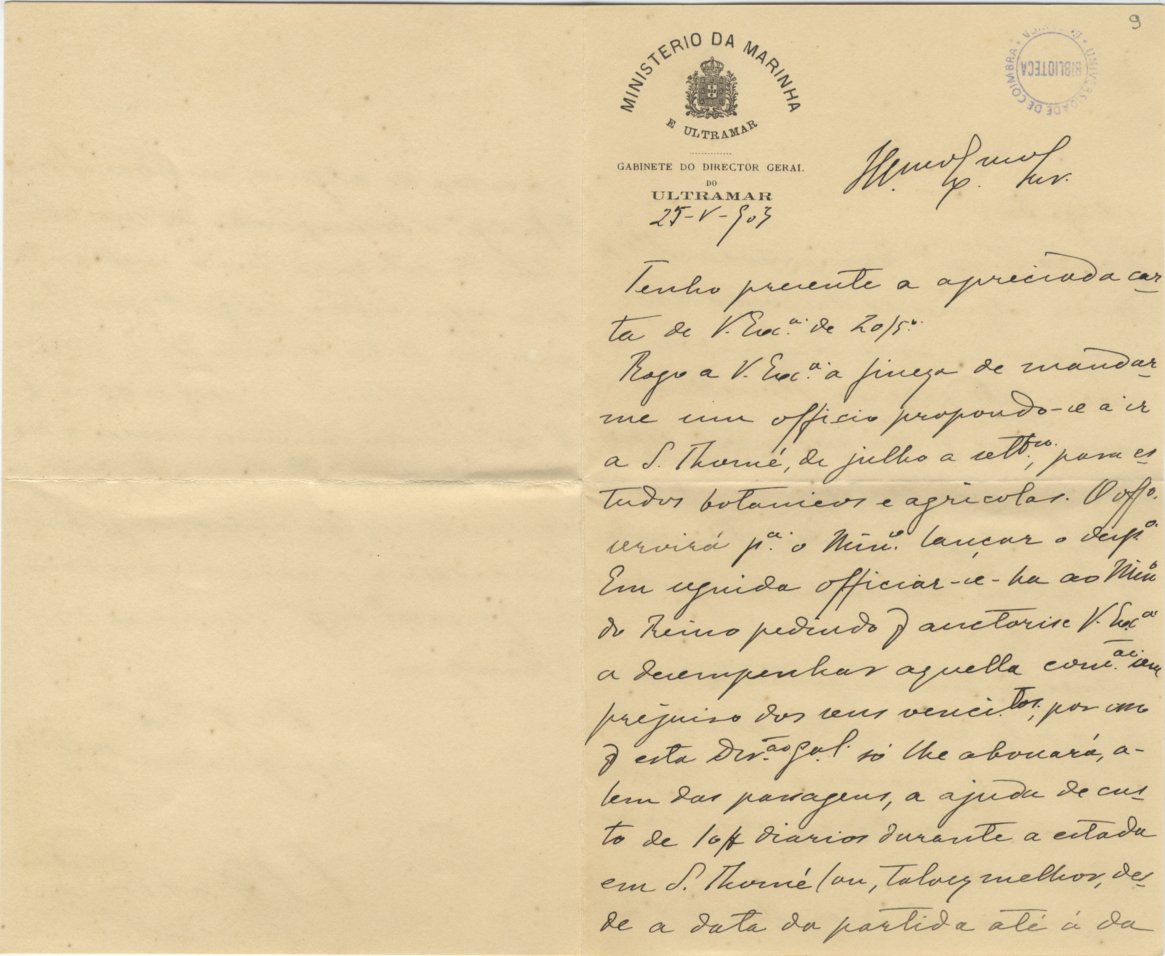 9
UNIVERSIDADE DE COIMBRA
BIBLIOTECA
MINISTERIO DA MARINHA
E ULTRAMAR
GABINETE DO DIRECTOR GERAL
DO
ULTRAMAR
25-V-903
Tenho presente a apreciada car-
ta de V. Exc.ª de 20/5º.
Rogo a V. Exc.ª a fineza de mandar-
me um officio propondo-se a ir
a S. Thomé, de julho a settbro., para es
tudos botanicos e agricolas. O offo.
servirá pª. o Mino. lançar o despº.
Em seguida officiar-se-ha ao Mino
do Reino pedindo q auctorise V. Excª
a desempenhar aquella com.ão sem
prejuiso dos seus vencitos., por isso
q esta Dir.ão Gal. só lhe abonará, a-
lem das passagens, a ajuda de cus-
to de 10$ diarios durante a estada
em S. Thomé (ou, talvez melhor, des-
de a data da partida até á da